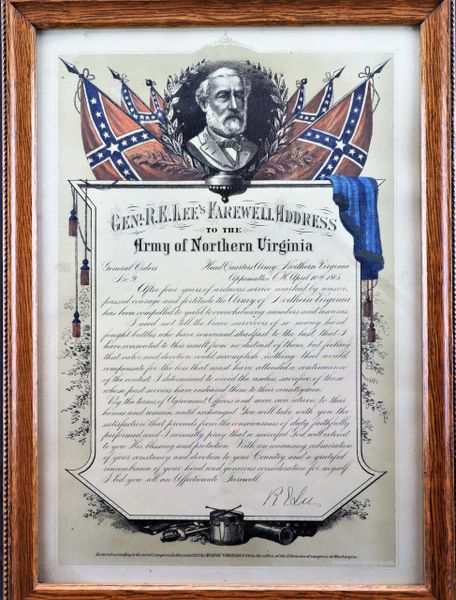 GENL. R.E. LEE'S FAREWELL ADDRESS
TO THE
Army of Northern Virginia
General Orders Head Quarters Army Northern Virginia
No 9 Appomattox C.H. April 10th 1865
After four years of arduous service marked by unsur-
passed courage and fortitude the Army of Northern Virginia
has been compelled to yield to overwhelming numbers and resources
I need not tell the brave survivors of so many hard
fought battles who have remained steadfast to the last that I
have consented to this result from no distrust of them, but feeling
that valor and devotion could accomplish nothing that would
compensate for the loss that must have attended a continuance
of the contest, I determined to avoid the useless sacrifice of those
whose past services have endeared them to their countrymen.
By the terms of Agreement Officers and men can return to their
homes and remain until exchanged. You will take with you the
satisfaction that proceeds from the consciousness of duty faithfully
performed and I earnestly pray that a merciful God will extend
to you His blessing and protection. With an unceasing admiration
of your constancy and devotion to your Country and a grateful
remembrance of your kind and generous consideration for myself
I bid you all an Affectionate Farewell.
R E Lee
Entered according to the act of congress in the year by in the office of the librarian of congress at Washington